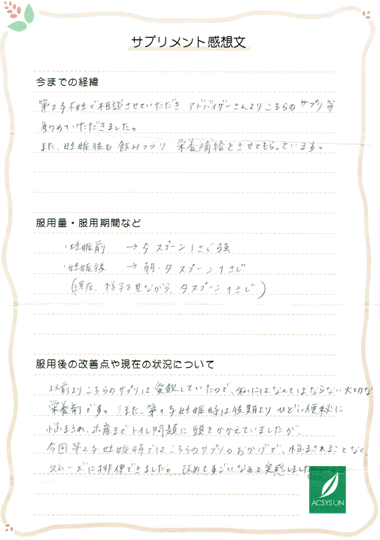 サプリメント感想文
今までの経緯
第2子不妊で相談させていただき、アドバイザーさんよりこちらのサプリを
勧めていただきました。
また、妊娠後も飲みつづけ 栄養補給をさせてもらっています。
服用量・服用期間など
・妊娠前 → 夕 スプーン1さじ強
・妊娠後 → 朝・夕 スプーン1さじ
(現在、様子を見ながら、夕スプーン1さじ)
服用後の改善点や現在の状況について
以前よりこちらのサプリは愛飲していたので、私にはなくてはならない大切な
栄養剤です。また、第1子妊娠時は後期よりひどい便秘に
悩まされ、出産までトイレ問題に頭をかかえていましたが、
今回第2子妊娠時ではこちらのサプリのおかげで、悩まされることなく、
スムーズに排便できました。改めてすごいなぁと実感しました
ACSYSUN